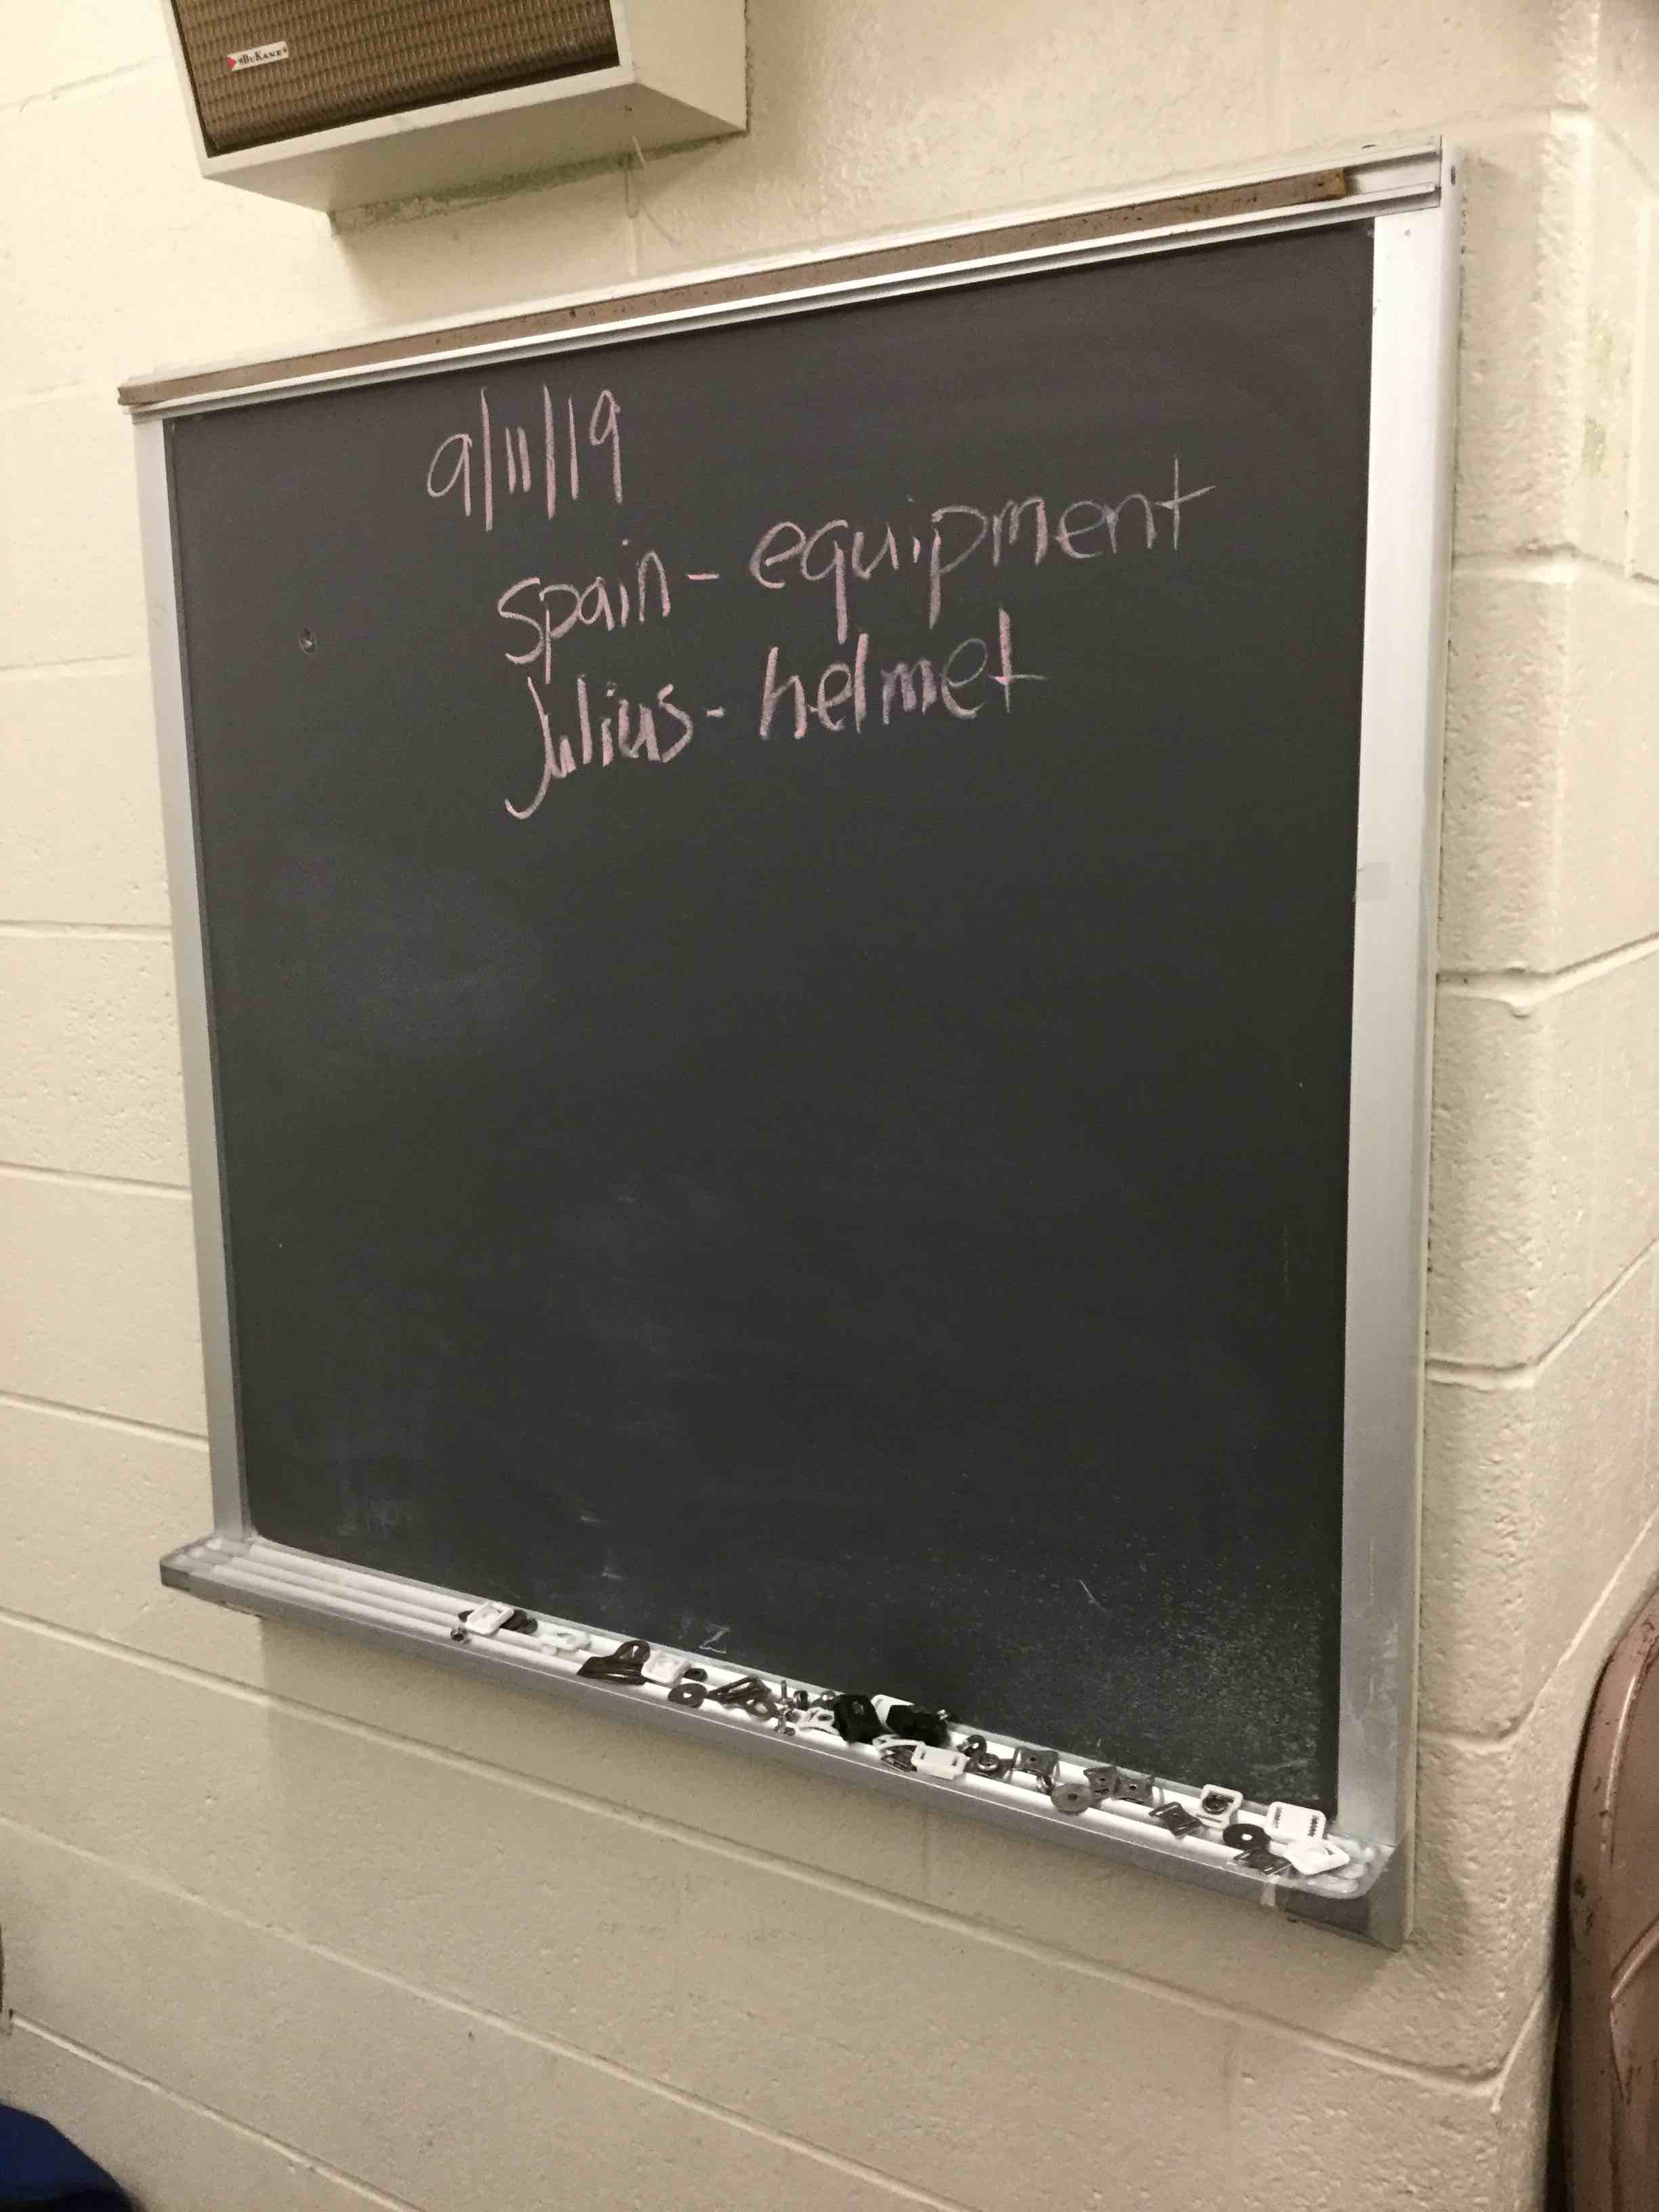 DUKANE
9/11/19
spain - equipment
Julius - helmet